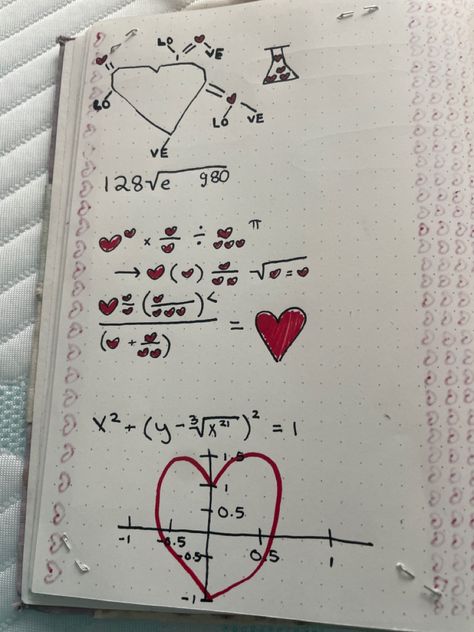 LO VE
LO
LO VE
VE
128√e 980
♥^♥ × ♥/♥ ÷ ♥♥/♥♥♥ π
→ ♥(♥) ♥/♥♥ √♥=♥
♥ = (♥/♥♥♥)^< / (♥ + ♥/♥♥) = ♥
x² + (y - ³√x²)² = 1
1.5
1
0.5
-1 -0.5 0.5 1
-0.5
-1